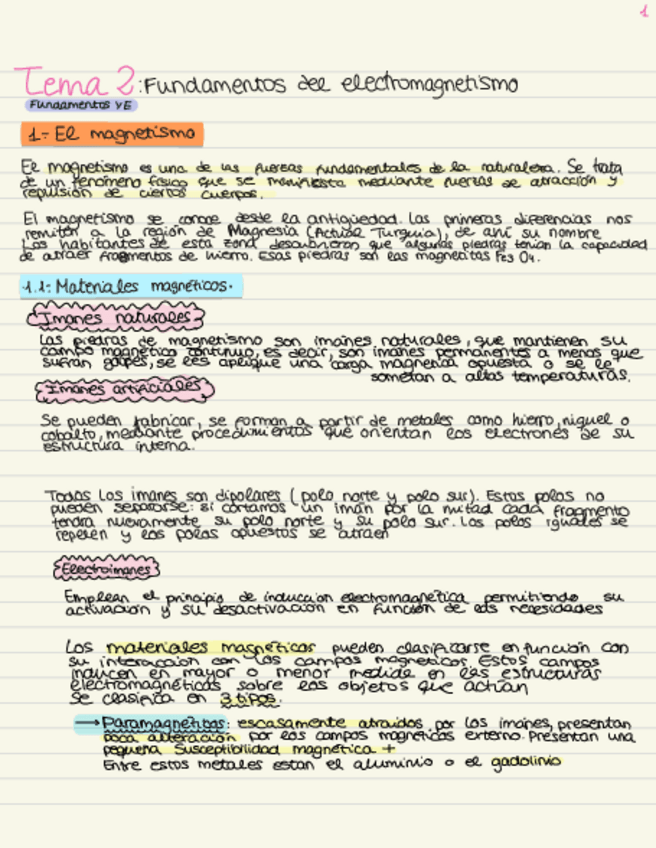 1
Tema 2: Fundamentos del electromagnetismo
Fundamentos y E
1.- El magnetismo
El magnetismo es una de las fuerzas fundamentales de la naturaleza. Se trata
de un fenómeno físico que se manifiesta mediante fuerzas de atracción y
repulsión de ciertos cuerpos.
El magnetismo se conoce desde la antigüedad. Las primeras diferencias nos
remiten a la región de Magnesia (Actual Turquía), de ahí su nombre
Los habitantes de esta zona descubrieron que algunas piedras tenían la capacidad
de atraer fragmentos de hierro. Esas piedras son las magnetitas Fe3 O4.
1.1: Materiales magnéticos.
Imanes naturales
Las piedras de magnetismo son imanes naturales, que mantienen su
campo magnético continuo, es decir, son imanes permanentes a menos que
sufran golpes, se les aplique una carga magnética opuesta o se le
sometan a altas temperaturas.
Imanes artificiales
Se pueden fabricar, se forman a partir de metales como hierro, níquel o
cobalto, mediante procedimientos que orientan los electrones de su
estructura interna.
Todos los imanes son dipolares (polo norte y polo sur). Estos polos no
pueden separarse: si cortamos un imán por la mitad cada fragmento
tendrá nuevamente su polo norte y su polo sur. Los polos iguales se
repelen y los polos opuestos se atraen
Electroimanes
Emplean el principio de inducción electromagnética permitiendo su
activación y su desactivación en función de las necesidades
Los materiales magnéticos pueden clasificarse en función con
su interacción con los campos magnéticos. Estos campos
inducen en mayor o menor medida en las estructuras
electromagnéticas sobre los objetos que actúan
Se clasifica en 3 tipos.
→ Paramagnéticos: escasamente atraídos por los imanes, presentan
poca alteración por los campos magnéticos externo. Presentan una
pequeña susceptibilidad magnética +
Entre estos metales están el aluminio o el gadolinio